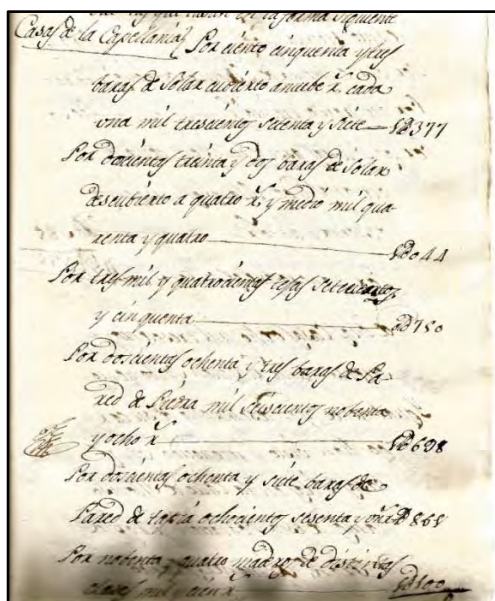 en la forma siguiente
Casas de la Capellania Por ciento cinquenta y tres
baras de Solar cuvierto a nuebe r.s cada
vna mil trescientos setenta y siete 1D377
Por docientas treinta y dos baras de Solar
descubierto a quatro r.s y medio mil qua
renta y quatro 1D044
Por tres mil y quatrocientas tejas setecientos
y cinquenta D750
Por doscientas ochenta y tres baras de Pa
red de Piedra mil seiscientos nobenta
y ocho r.s 1D698
Por doscientas ochenta y siete baras de
Pared de tapia ochocientos sesenta y D868
Por nobenta y quatro maderos de distintas
clases mil y cien r.s 1D100